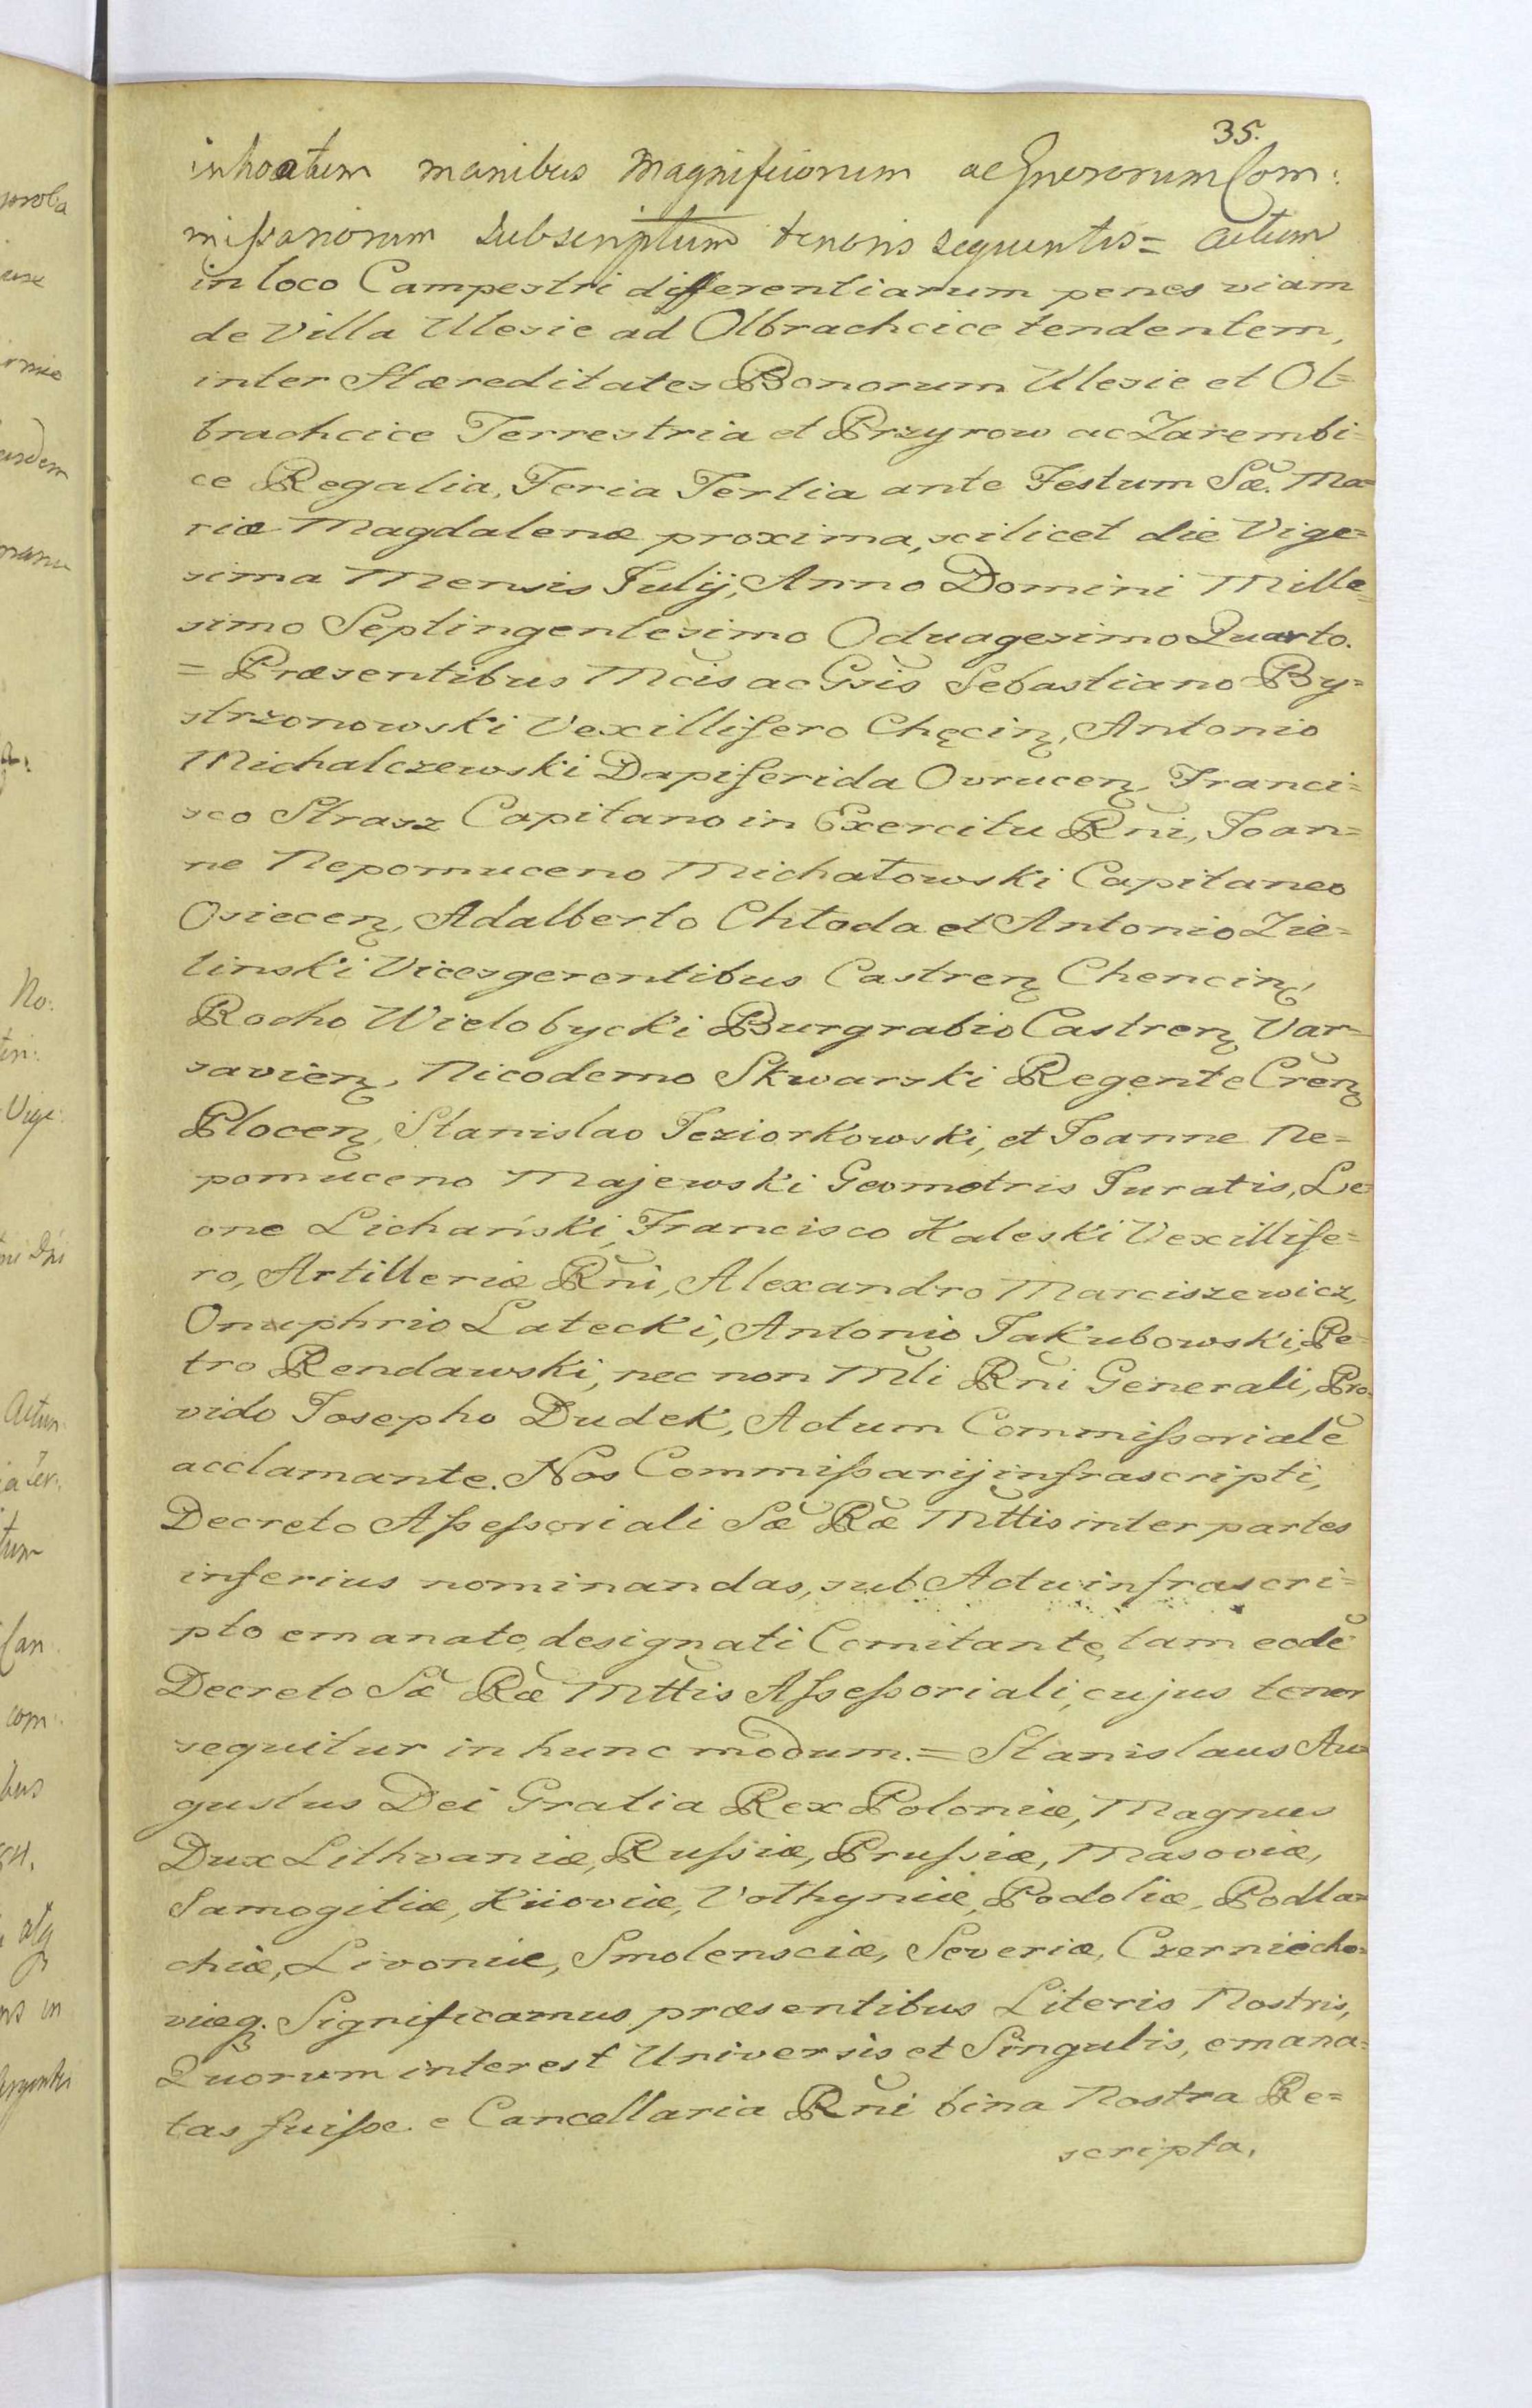 35.
inhoatum manibus Magnificorum ac Gnerorum Com:
missariorum subscriptum tenoris sequentis = Actum
in loco Campestri differentiarum penes viam
de Villa Ulesie ad Olbrachcice tendentem,
inter Hæreditates Bonorum Ulesie et Ol=
brachcice Terrestria et Przyrow ac Zarembi=
ce Regalia, Feria Tertia ante Festum Sæ. Ma=
riæ Magdalenæ proxima, scilicet die Vige=
sima Mensis Julij, Anno Domini Mille=
simo Septingentesimo Octuagesimo Quarto.
= Præsentibus Mcis ac Gsis Sebastiano By=
strzonowski Vexillifero Chęcin, Antonio
Michalczewski Dapiferida Ovrucen, Franci=
sco Strasz Capitano in Exercitu Rni, Joan=
ne Nepomuceno Michałowski Capitaneo
Osiecen, Adalberto Chłoda et Antonio Zie=
linski Vicesgerentibus Castren Chencin,
Rocho Wielobycki Burgrabio Castren Var=
savien, Nicodemo Skwarski Regente Cren
Plocen, Stanislao Jeziorkowski, et Joanne Ne=
pomuceno Majewski Geometris Juratis, Le=
one Lichański, Francisco Kaleski Vexillife=
ro, Artilleriæ Rni, Alexandro Marciszewicz,
Onuphrio Latecki, Antonio Jakubowski, Pe=
tro Rendawski, nec non Mli Rni Generali, Pro=
vido Josepho Dudek, Actum Commissoriale
acclamante. Nos Commissarij infrascripti,
Decreto Assessoriali Sæ Ræ Mttis inter partes
inferius nominandas, sub Actu infrascri=
pto emanato, designati Comitante, tam eode
Decreto Sæ Ræ Mttis Assessoriali, cujus tenor
sequitur in hunc modum. = Stanislaus Au=
gustus Dei Gratia Rex Poloniæ, Magnus
Dux Lithvaniæ, Russiæ, Prussiæ, Masoviæ,
Samogitiæ, Kiioviæ, Volhyniæ, Podoliæ, Podla=
chiæ, Livoniæ, Smolensciæ, Severiæ, Czerniecho=
viæq. Significamus præsentibus Literis Nostris,
Quorum interest Universis et Singulis, emana=
tas fuisse e Cancellaria Rni bina Nostra Re=
scripta,